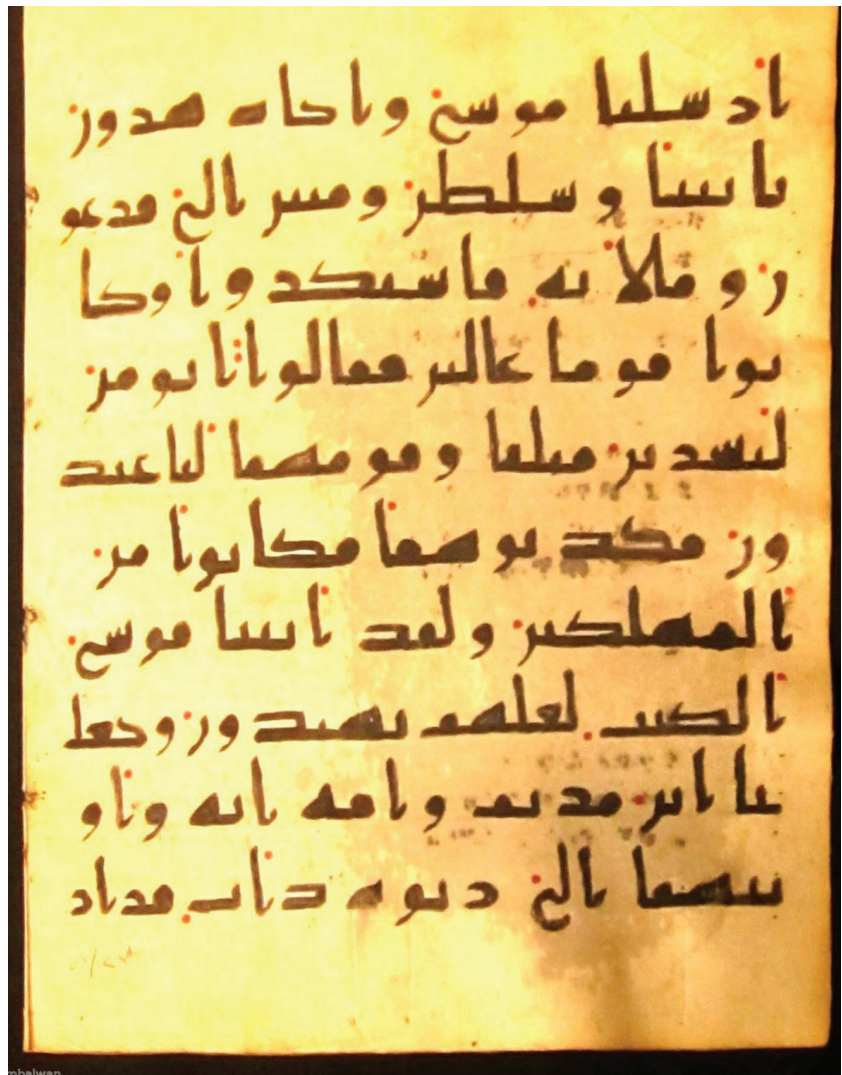 ارسلنا موسى واخاه هرون
بايتنا وسلطن مبين الى فرعو
ن وملايه فاستكبروا وكا
نوا قوما عالين فقالوا انومن
لبشرين مثلنا وقومهما لنا عبد
ون فكذبوهما فكانوا من
المهلكين ولقد اتينا موسى
الكتب لعلهم يهتدون وجعل
نا ابن مريم وامه ايه واو
ينهما الى ربوه ذات قرار